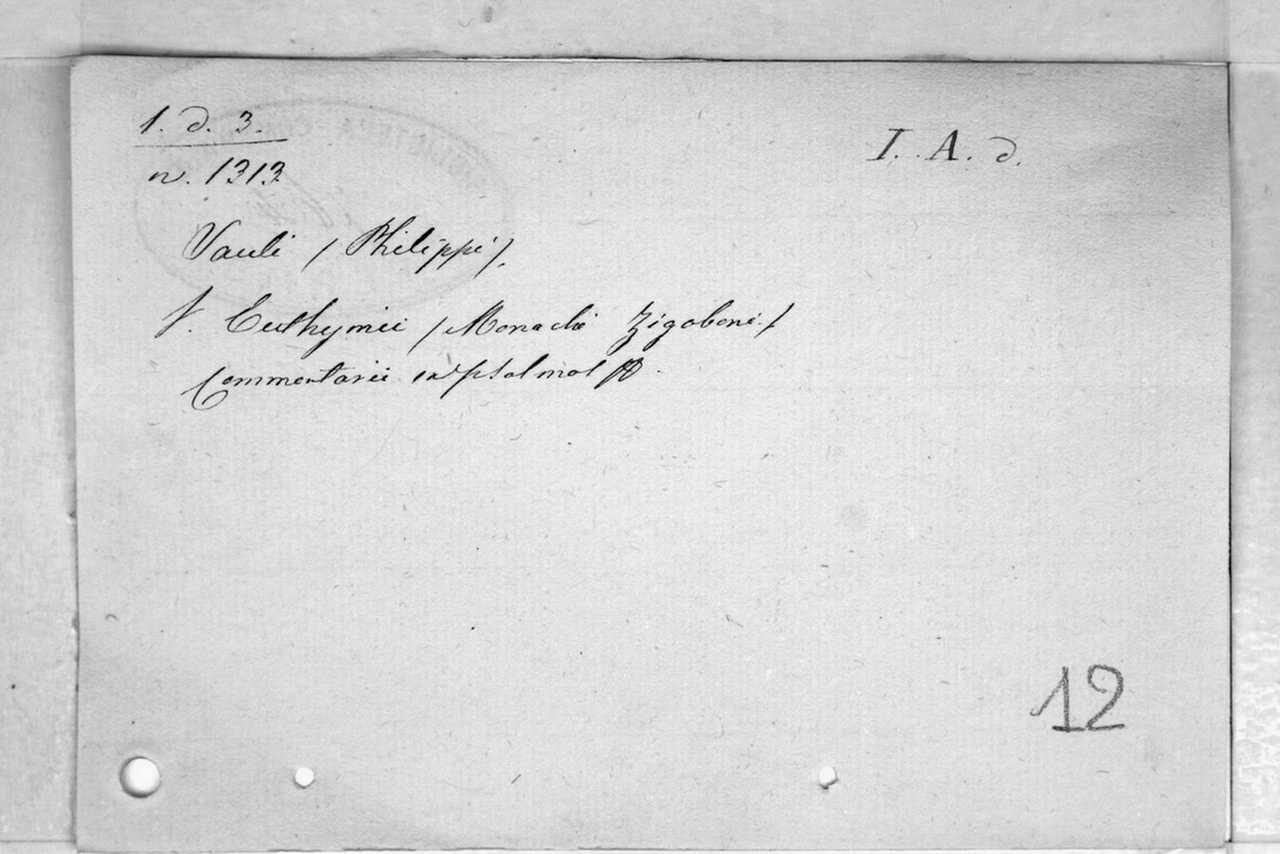 1. d. 3.
I. A. d.
n. 1313
Vauli / Philippi /.
V. Euthymii / Monachi Zigabeni. /
Commentarii in psalmos
12